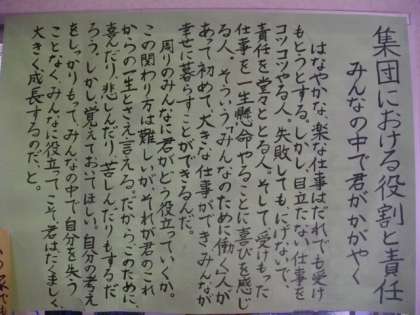 集団における役割と責任
みんなの中で君がかがやく
はなやかな、楽な仕事はだれでも受け
もとうとする。しかし、目立たない仕事を
コツコツやる人。失敗しても、にげないで、
責任を堂々ととる人。そして、受けもった
仕事を一生懸命やることに喜びを感じ
る人。そういう「みんなのために働く」人が
あって初めて大きな仕事ができ、みんなが
幸せに暮らすことができるんだ。
周りのみんなに君がどう役立っていくか。
この関わり方は難しいが、それが君のこれ
からの一生とさえ言える。だから、このために、
喜んだり、悲しんだり、苦しんだりもするだ
ろう。しかし、覚えておいてほしい。自分の考え
をしっかりもって、みんなの中で自分を失う
ことなく、みんなに役立ってこそ、君はたくましく、
大きく成長するのだ、と。